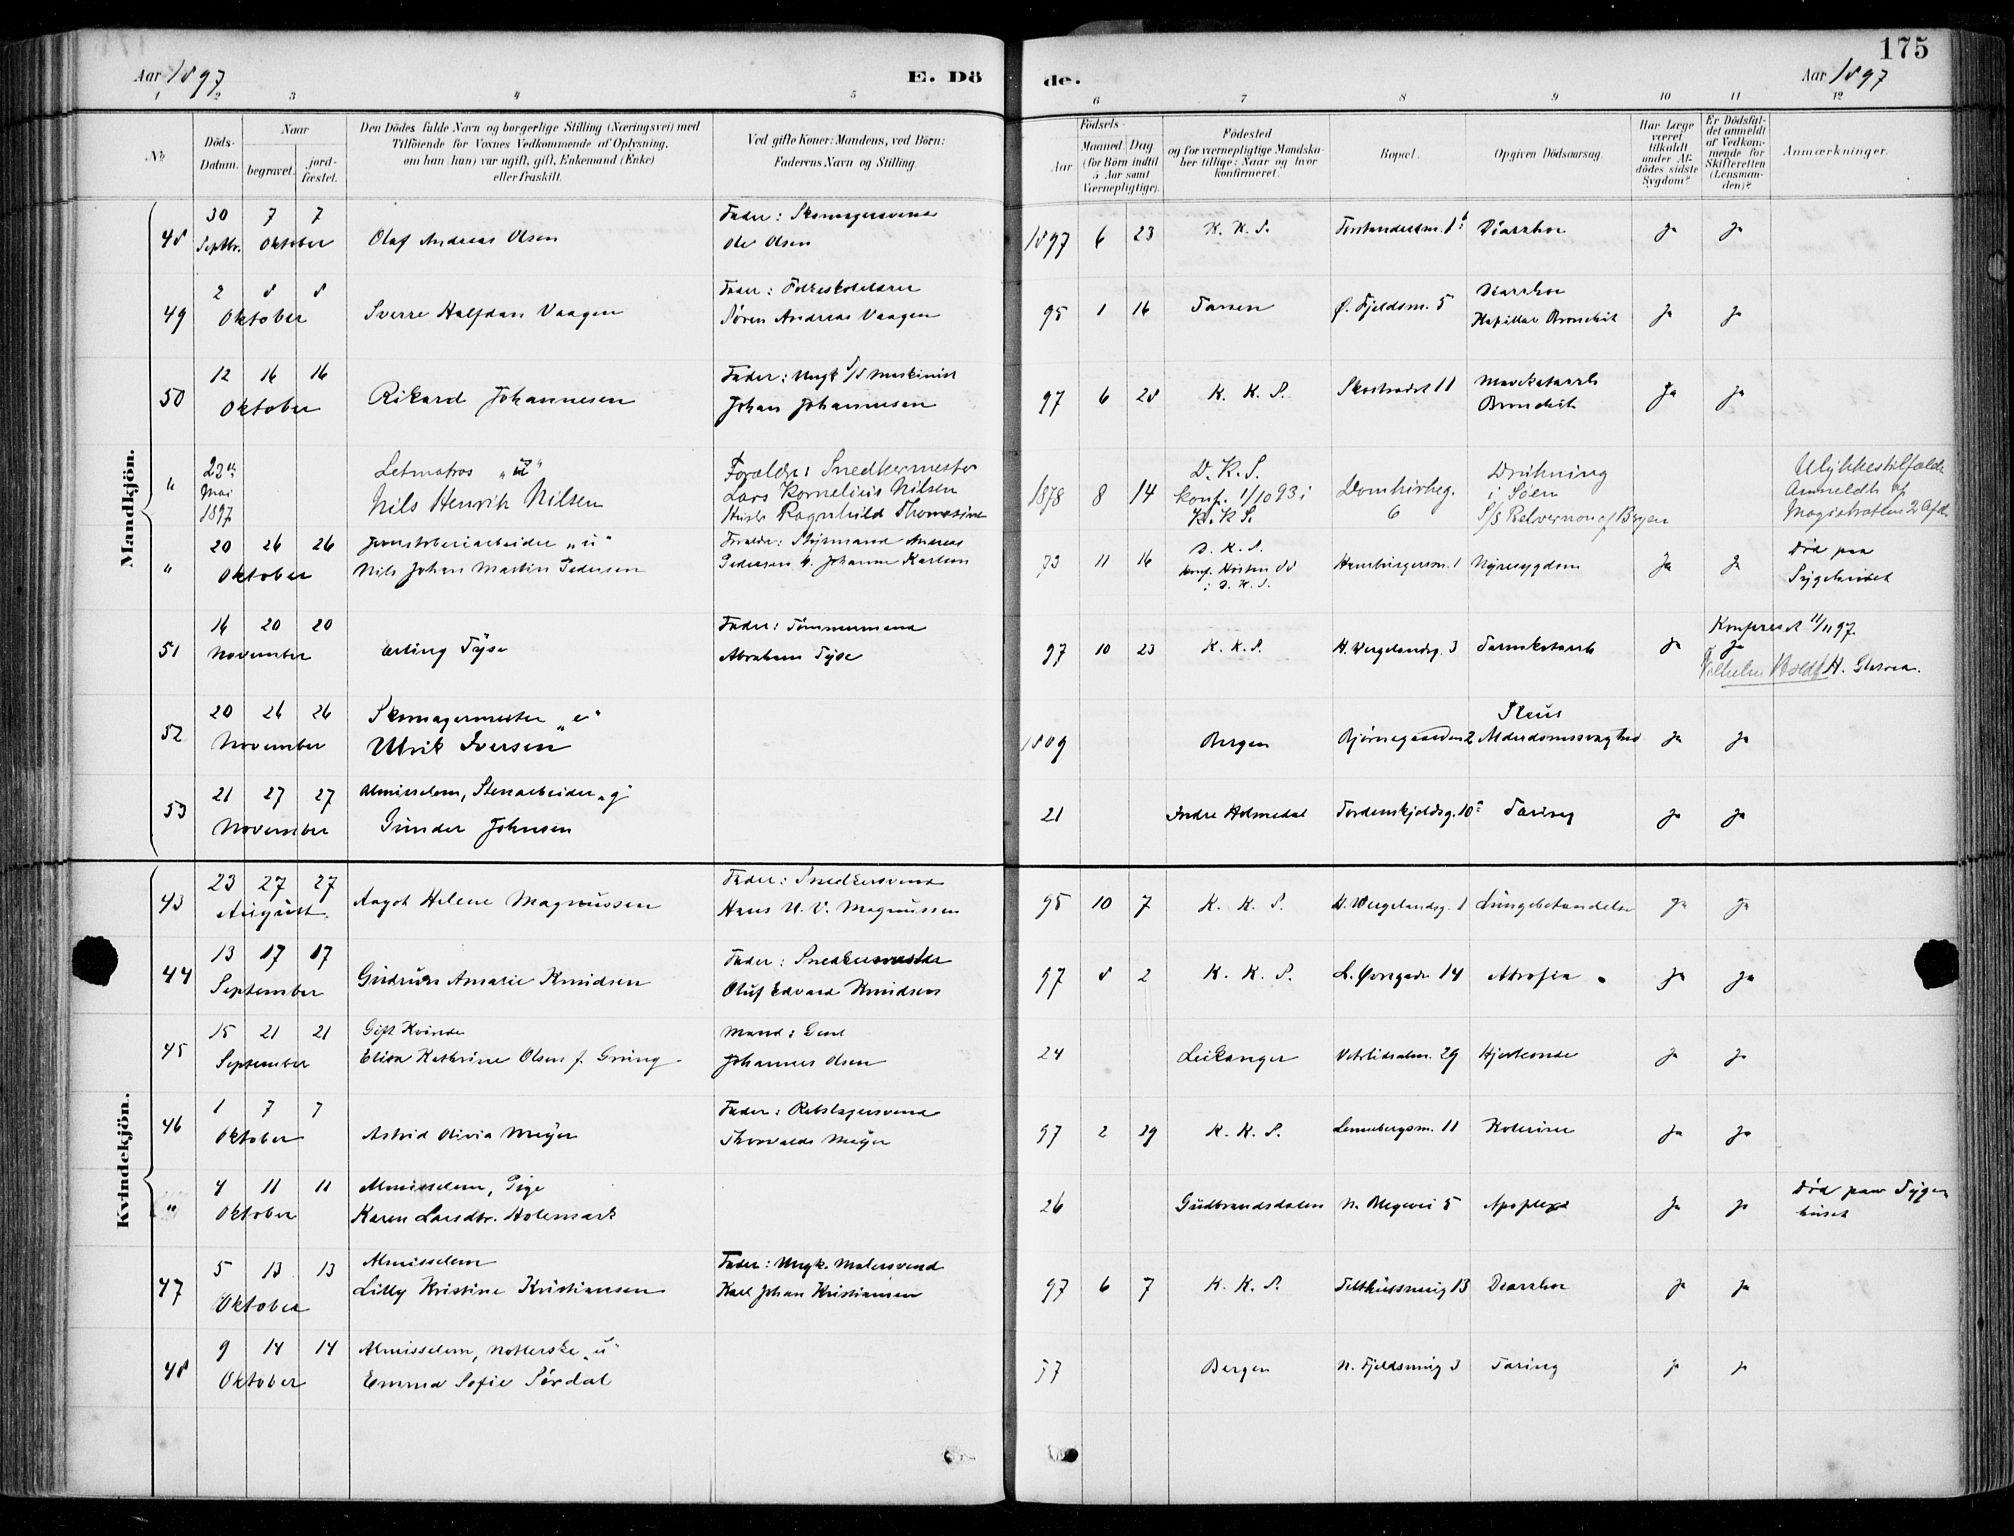 175
Aar 1897
E. Dö
de.
Aar 1897
1 2 3 4 5 6 7 8 9 10 11 12
No
Döds-Datum.
Naar
begravet.
jord-fæstet.
Den Dödes fulde Navn og borgerlige Stilling (Næringsvei) med
Tilföiende for Voxnes Vedkommende af Oplysning,
om han (hun) var ugift, gift, Enkemand (Enke)
eller fraskilt.
Ved gifte Koner: Mandens, ved Börn:
Faderens Navn og Stilling.
Födsels-
Aar
Maaned Dag
(for Börn indtil
5 Aar samt
Værnepligtige).
Födested
og for værnepligtige Mandska-
ber tillige: Naar og hvor
konfirmeret.
Bopæl.
Opgiven Dödsaarsag.
Har Læge
været
tilkaldt
under Af-
dödes sidste
Sygdom?
Er Dödsfal-
det anmeldt
af Vedkom-
mende for
Skifteretten
(Lensman-
den)?
Anmærkninger.
Mandkjön.
48 30 7 7 Fader: Skomagersvend
Septbr. Oktober Olaf Andreas Olsen Ole Olsen 1897 6 23 K. K. S. Diarrhoe Ja Ja
49 2 8 8 Fader: Folkeskolelærer Diarrhoe
Oktober Sverre Halfdan Vaagen Søren Andreas Vaagen 95 1 16 Ø. Fjeldsm. 5 Kapillær Bronchit Ja Ja
50 12 16 16 Fader: Ungk. S/S Maskinist
Oktober Rikard Johannesen Johan Johannesen 97 6 28 K. K. S. Skostrædet 11 Mavekatarrh Bronchit Ja Ja
" 22de Mai 1897 Letmatros "u"
Nils Henrik Nilsen
Forældre: Snedkermester
Lars Kornelius Nilsen
Hustr Ragnhild Thomasine
1878 8 14 D. K. S.
konf. 1/10 93 i
K. K. S.
Domkirkeg.
6
Drukning
i Søen
S/S Belvernon af Bergen
Ulykkestilfælde
Anmeldt af
Magistratens 2 Afd.
" 20 26 26 "u"
Oktober Nils Johan Martin Pedersen
Forældre: Styrmand Andreas
Pedersen & Johanne Karlsen
73 11 16 D. K. S.
konf. Høsten 88
i D. K. S.
Hamburgersm. 1 Nyresygdom Ja Ja Død paa
Sygehuset
51 14 20 20 Fader: Tømmermand
November Erling Tyse Abraham Tyse 97 10 23 K. K. S. H. Wergelandsg. 3 Tarmkatarrh Ja Ja
Konfereret 11/11 97.
Vilhelm Boldt H.
52 20 26 26 Skomagermester "e"
November Ulrik Iversen 1809 Bergen Bjørnegaarden 2 Alderdomssvaghed Ja Ja
53 21 27 27 Almisselem, Stenarbeider "g"
November Gunder Johnsen 21 Indre Holmedal Tordenskjoldsg. 10a Tæring Ja Ja
Kvindekjön.
43 23 27 27 Fader: Snedkersvend
August Aagot Helene Magnussen Hans U. V. Magnussen 95 10 7 K. K. S. H. Wergelandsg. 1 Lungebetændelse Ja Ja
44 13 17 17 Fader: Snedkermester
September Gudrun Amarie Knudsen Oluf Edvard Knudsen 97 8 2 K. K. S. L. Øvregade 14 Atrofia Ja Ja
45 15 21 21 Gift Kvinde Mand:
September Elisa Kathrine Olsen f. Grung Johannes Olsen 24 Leikanger Vetrlidsalm. 29 Hjerteonde Ja Ja
46 1 7 7 Fader: Rebslagersvend
Oktober Astrid Olivia Meyer Thorvald Meyer 97 2 29 K. K. S. Lennebergsm. 11 Kolerine Ja Ja
" 4 11 11 Almisselem, Pige
Oktober Karen Larsdtr. Holemark 26 Gudbrandsdalen N. Blegevei 5 Apoplexi Ja Ja Død paa Syge-
huset
47 5 13 13 Almisselem Fader: Ungk. Malersvend
Oktober Lilly Kristine Kristiansen Karl Johan Kristiansen 97 6 7 K. K. S. 13 Diarrhoe Ja Ja
48 9 14 14 Almisselem, "u"
Oktober Emma Sofie Sørdal 77 Bergen N. Fjeldsmug 3 Tæring Ja Ja